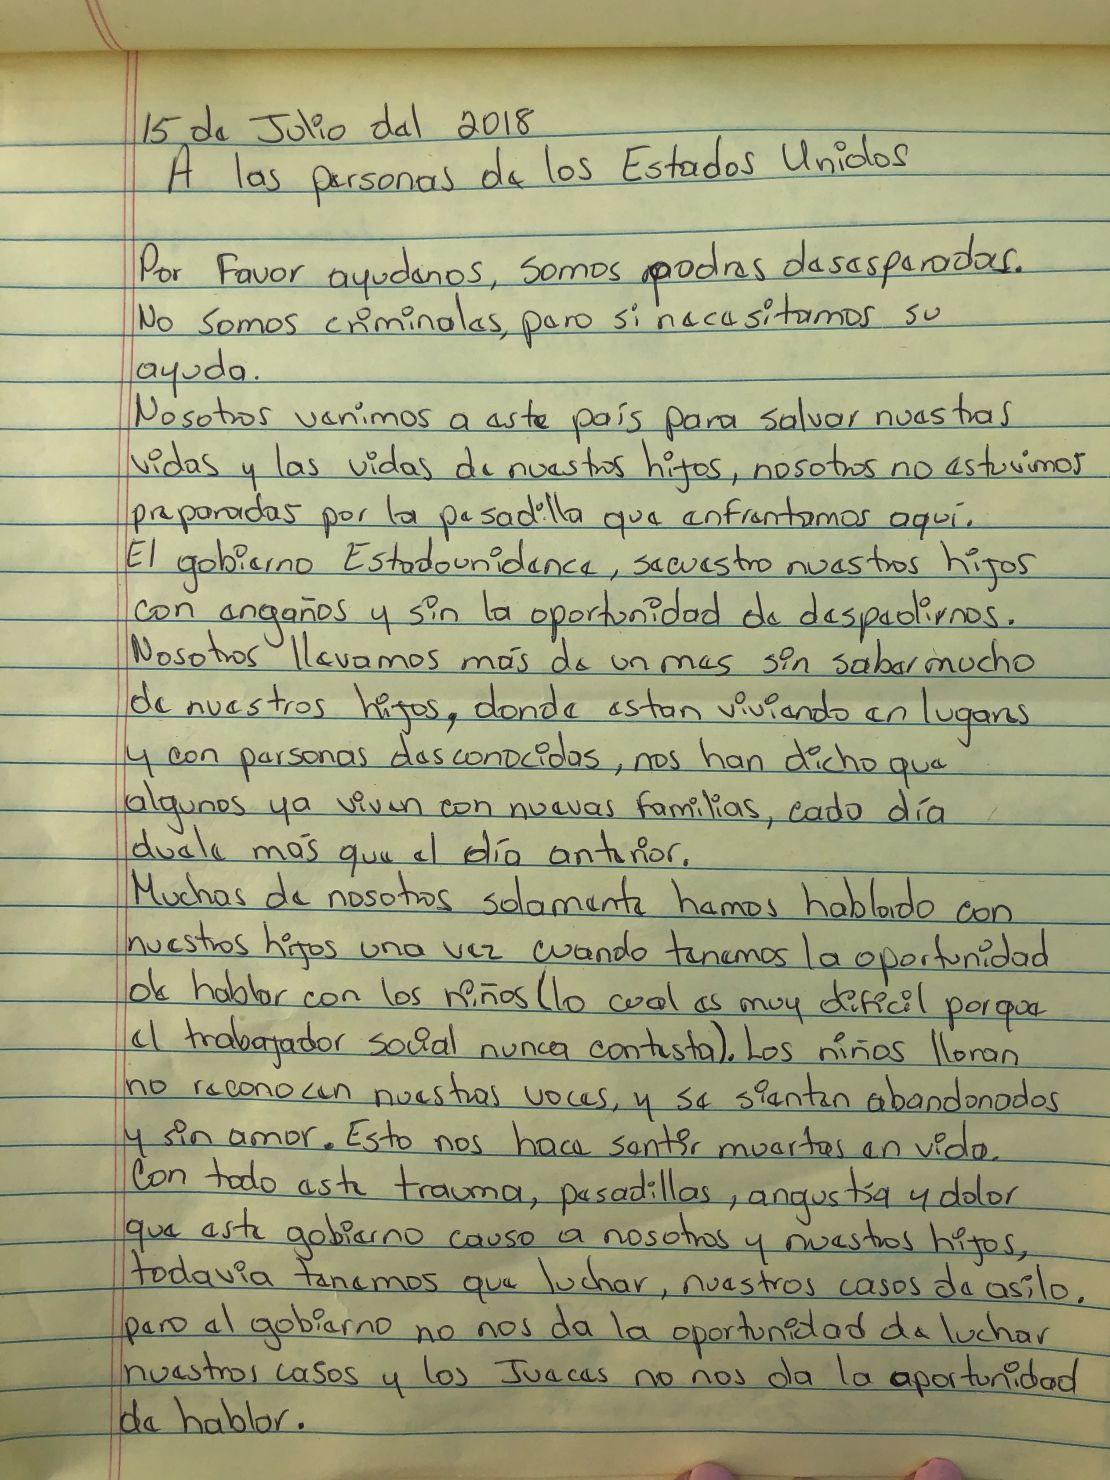 15 de Julio del 2018
A las personas de los Estados Unidos
Por Favor ayudenos, somos padres desesperados.
No somos criminales, pero si necesitamos su
ayuda.
Nosotros venimos a este país para salvar nuestras
vidas y las vidas de nuestros hijos, nosotros no estuvimos
preparados por la pesadilla que enfrentamos aquí.
El gobierno Estadounidence, secuestro nuestros hijos
con engaños y sin la oportunidad de despedirnos.
Nosotros llevamos más de un mes sin saber mucho
de nuestros hijos, donde estan viviendo en lugares
y con personas desconocidas, nos han dicho que
algunos ya viven con nuevas familias, cada día
duele más que el día anterior.
Muchas de nosotros solamente hemos hablado con
nuestros hijos una vez cuando tenemos la oportunidad
de hablar con los niños (lo cual es muy dificil porque
el trabajador social nunca contesta). Los niños lloran
no reconocen nuestras voces, y se sienten abandonados
y sin amor. Esto nos hace sentir muertas en vida.
Con todo este trauma, pesadillas, angustía y dolor
que este gobierno causo a nosotros y nuestros hijos,
todavia tenemos que luchar, nuestros casos de asilo.
pero el gobierno no nos da la oportunidad de luchar
nuestros casos y los Jueces no nos da la oportunidad
de hablar.